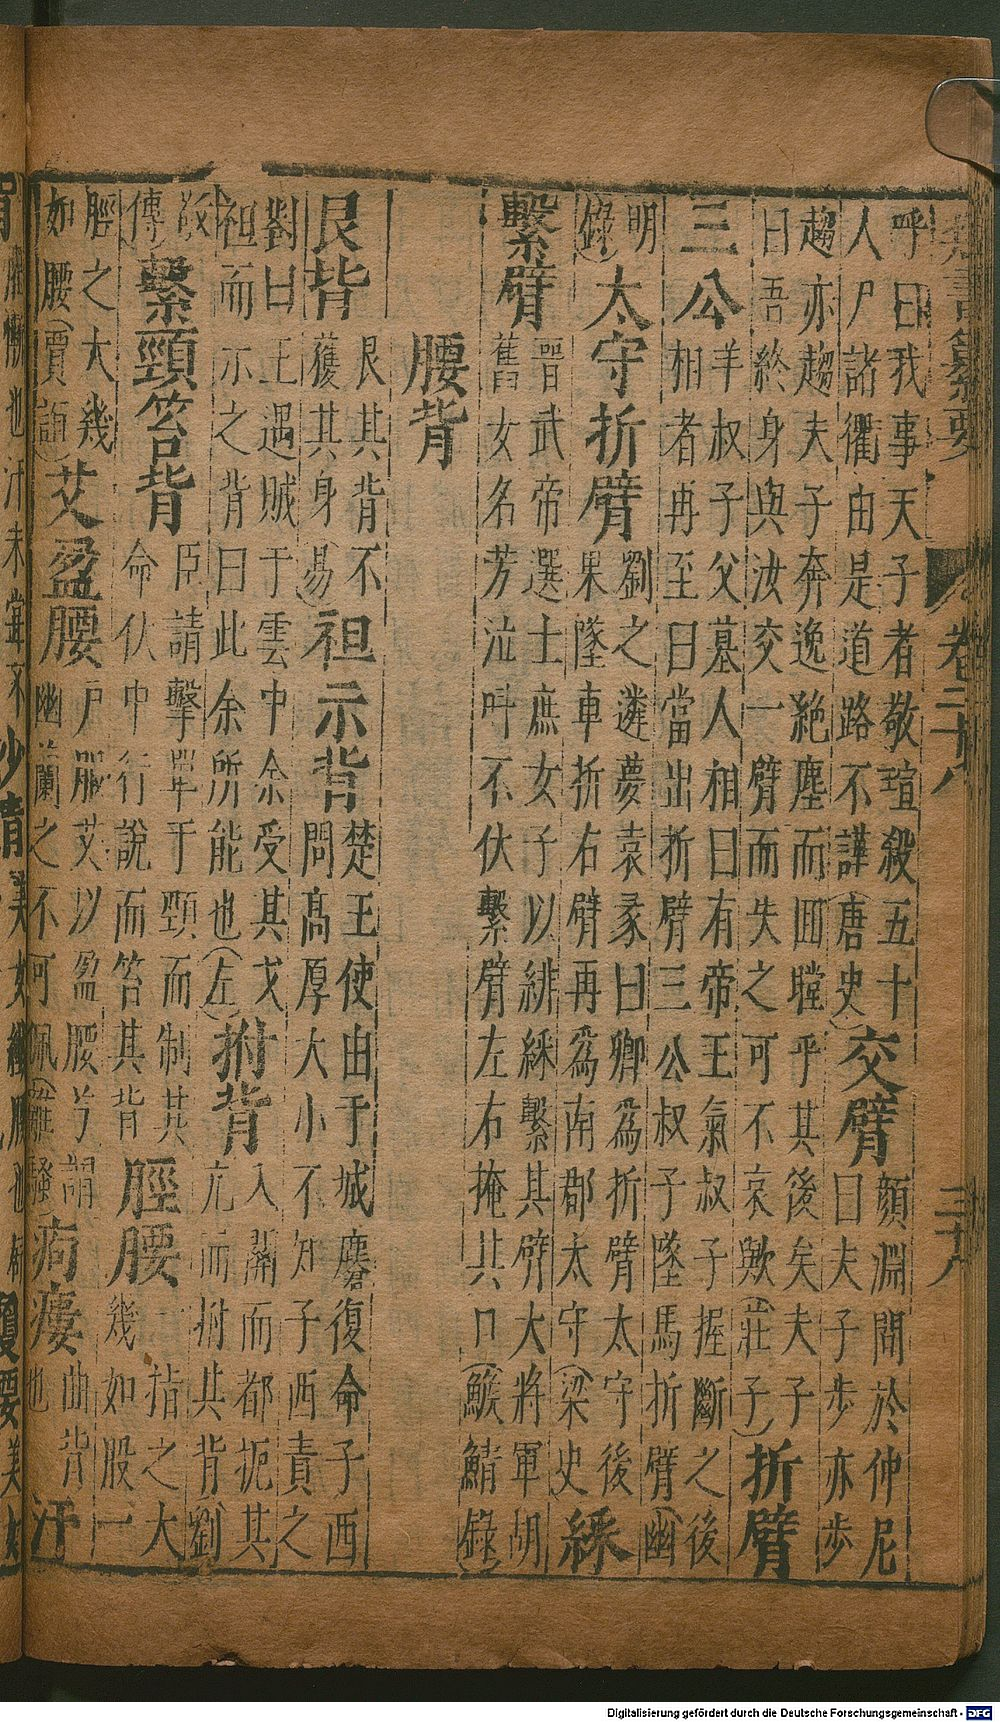 卷二十八
三十八
呼曰我事天子者敬瑄殺五十
人尸諸衢由是道路不譁(唐史)交臂顏淵問於仲尼
曰夫子步亦步
趨亦趨夫子奔逸絕塵而回瞠乎其後矣夫子
曰吾終身與汝交一臂而失之可不哀歟(莊子)折臂
三公羊叔子父墓人相曰有帝王氣叔子握斷之後
相者再至曰當出折臂三公叔子墜馬折臂(幽
明
錄)太守折臂劉之遴夢袁彖曰卿為折臂太守後
果墜車折右臂再為南郡太守(梁史)綵
繫臂晉武帝選士庶女子以緋綵繫其臂大將軍胡
舊女名芳泣叫不伏繫臂左右掩其口(鯸鯖錄)
腰背
艮背艮其背不
獲其身(易)袒示背楚王使由于城麇復命子西
問高厚大小不知子西責之
對曰王遇賊于雲中余受其戈
袒而示之背曰此余所能也(左)拊背入關而都扼其
亢而拊其背(劉
敬
傳)繫頸笞背臣請擊單于頸而制其
命伏中行說而笞其背脛腰指之大
幾如股一
脛之大幾
如腰(賈誼)艾盈腰戶服艾以盈腰兮謂
幽蘭之不可佩(離騷)痀瘻曲背
也汗